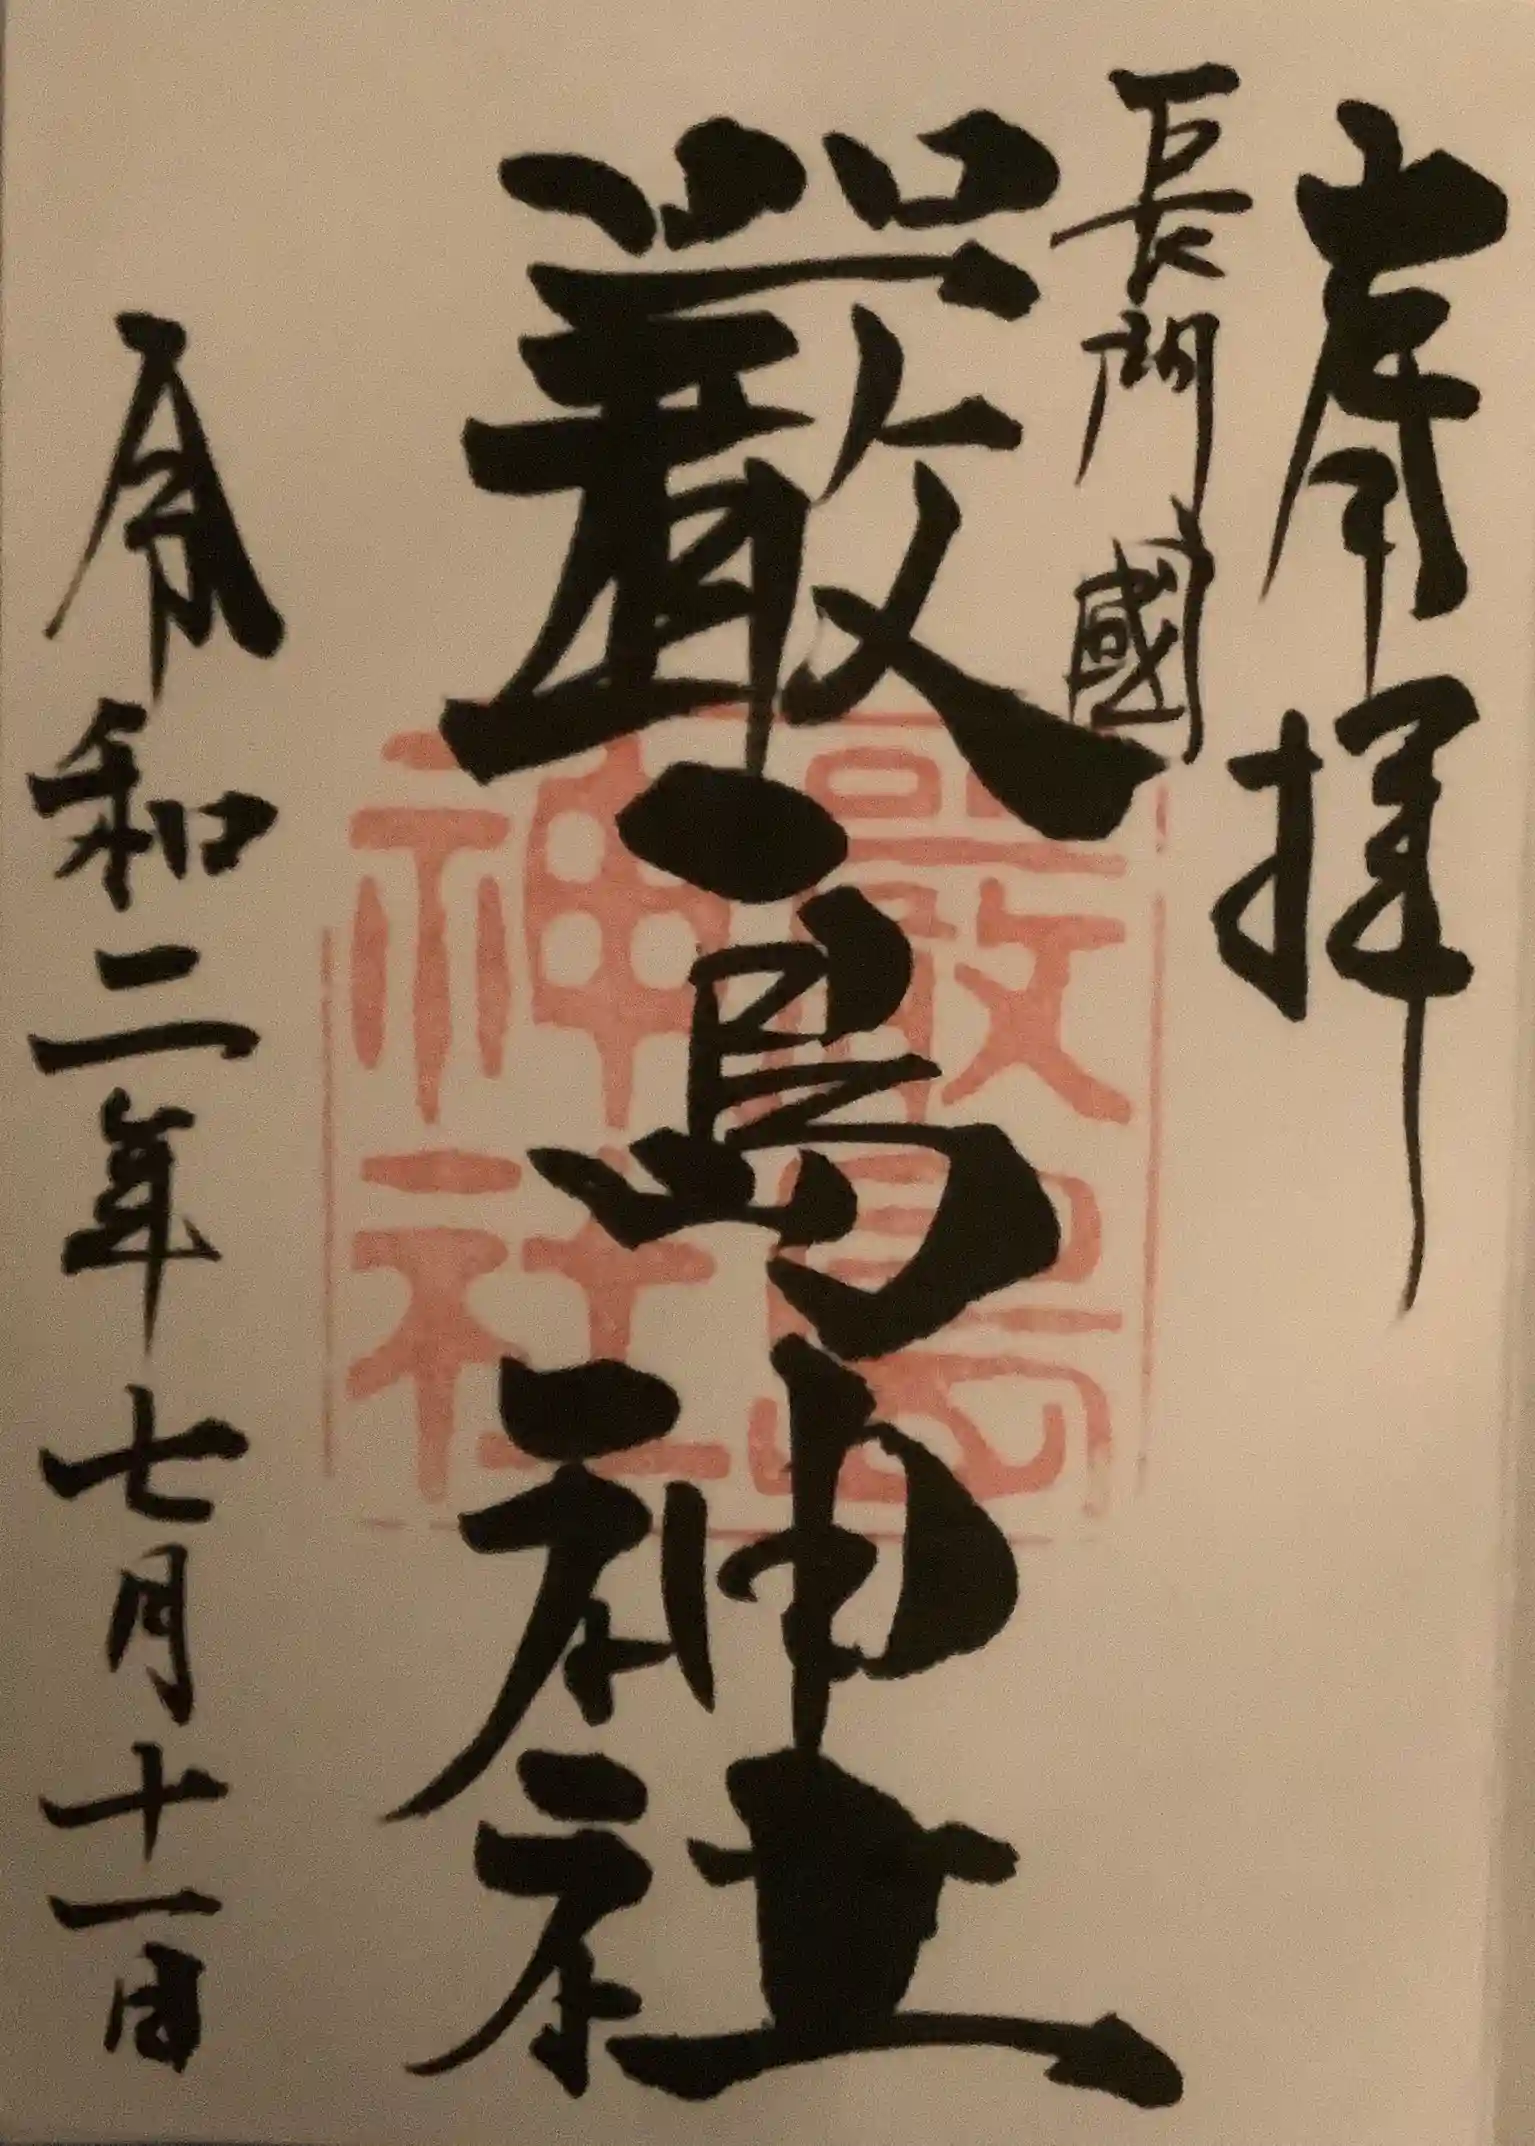 奉拝
長門國
嚴島神社
嚴島
神社
令和二年七月十一日